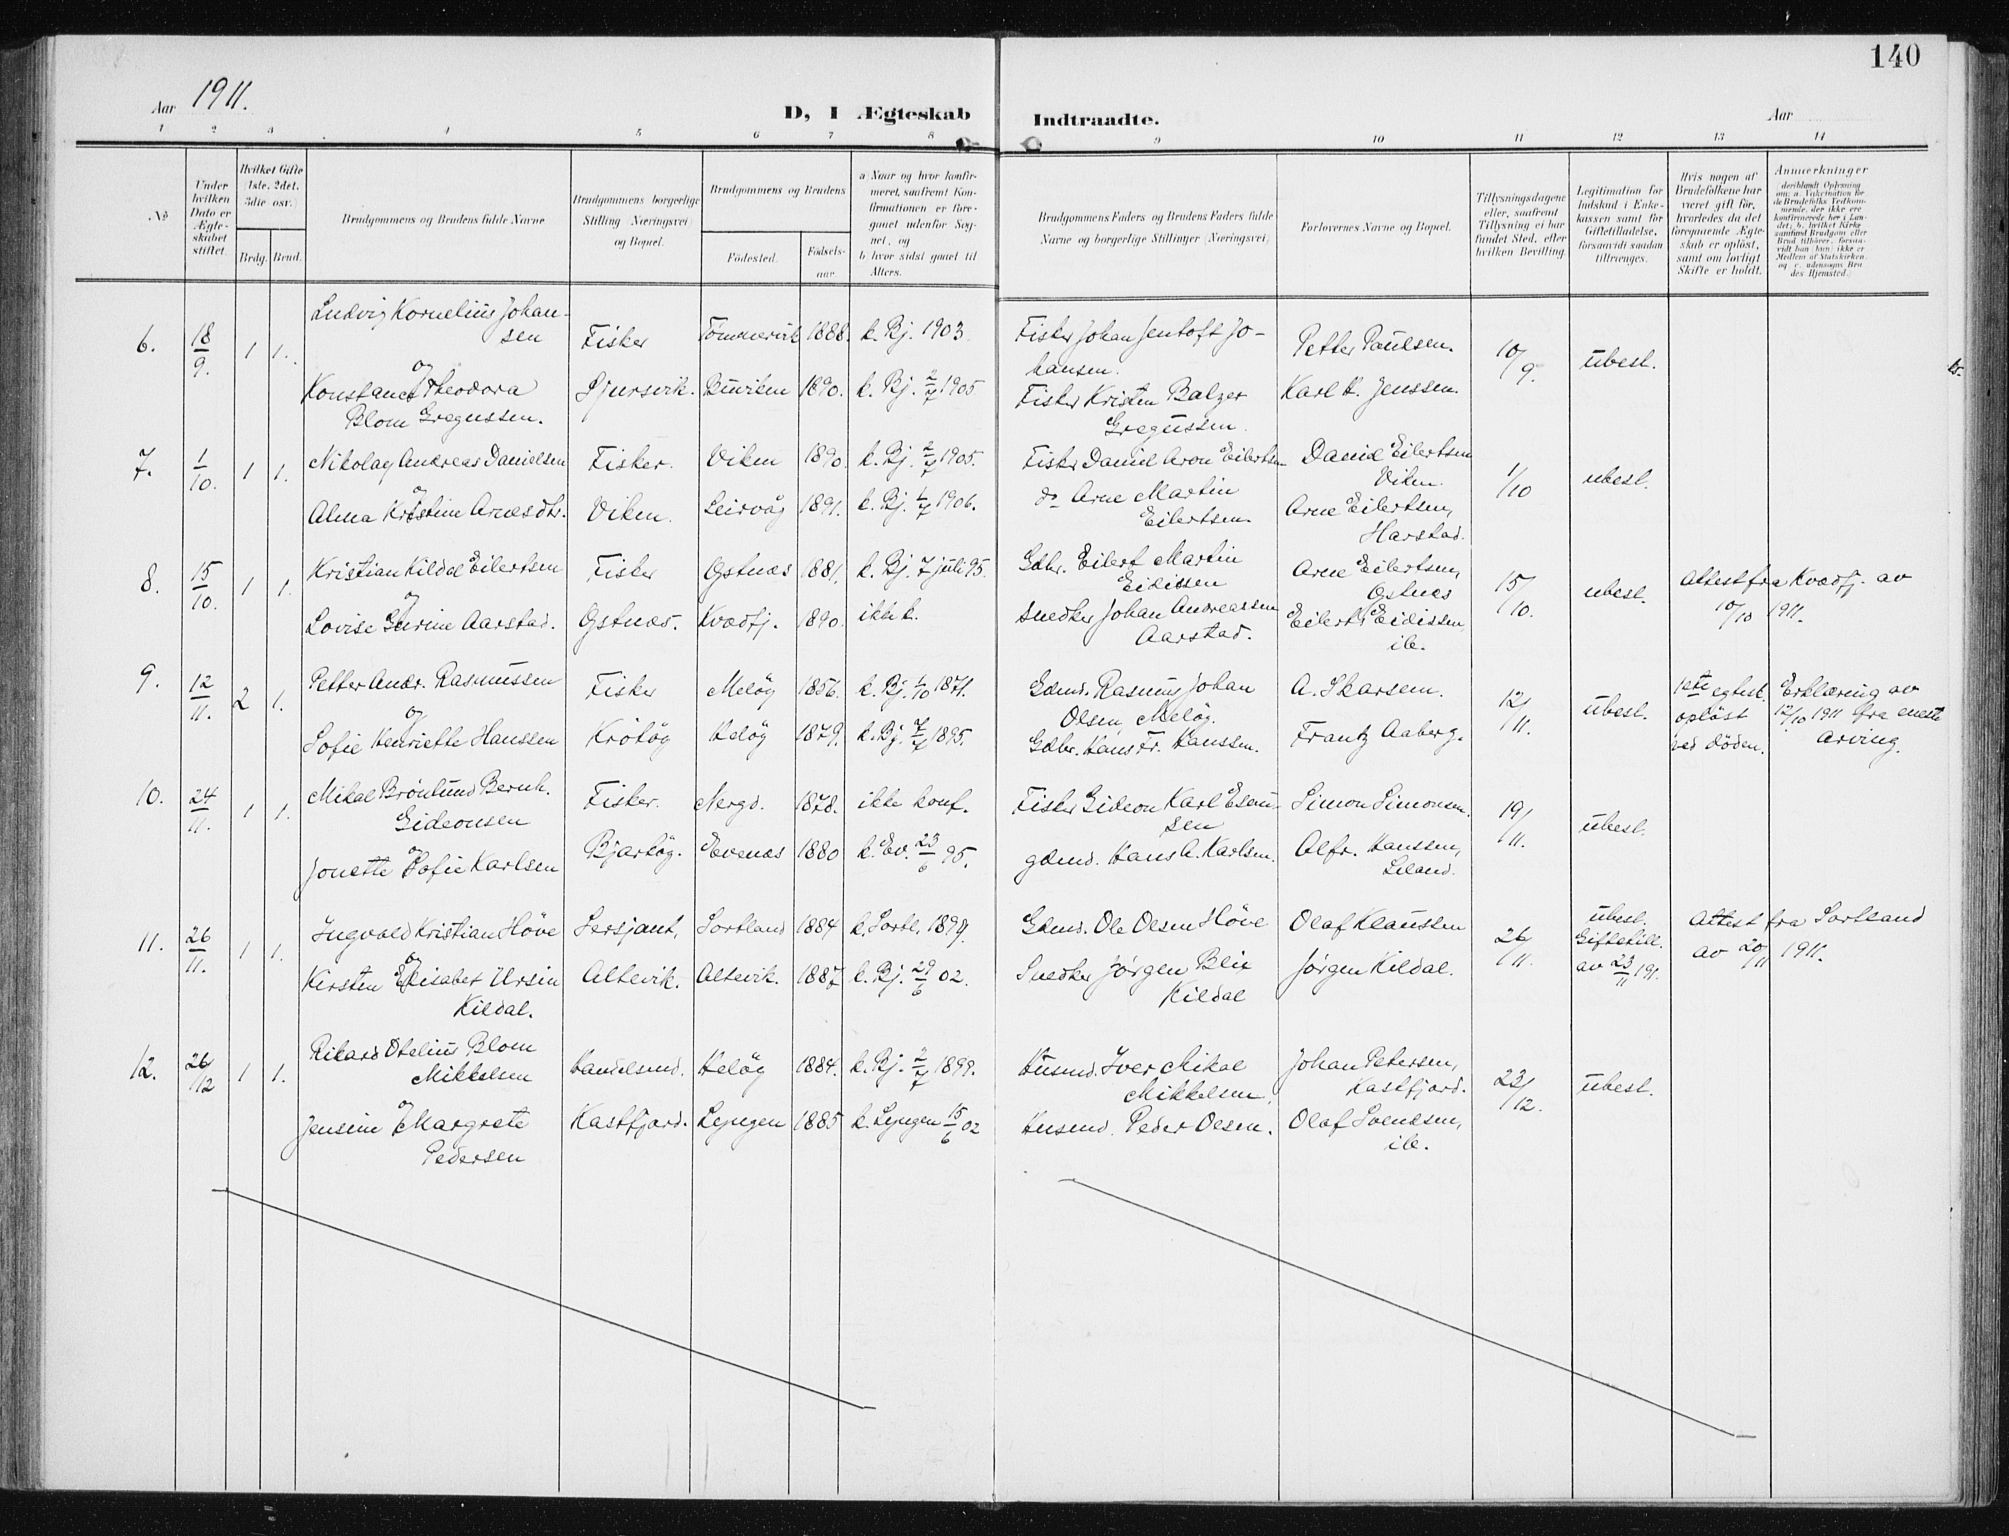 140
Aar 1911.
D, I Ægteskab Indtraadte.
Aar
1 2 3 4 5 6 7 8 9 10 11 12 13 14
No
Under hvilken Dato er Ægteskabet stiftet.
Hvilket Gifte 1ste, 2det, 3die osv.
Brdg. Brud.
Brudgommens og Brudens fulde Navne
Brudgommens borgerlige Stilling (Næringsvei) og Bopæl.
Brudgommens og Brudens
Fødested.
Fødsels-aar.
a) Naar og hvor konfirmeret, saafremt Konfirmationen er foregaaet udenfor Sognet, og
b) hvor sidst gaaet til Alters.
Brudgommens Faders og Brudens Faders fulde Navne og borgerlige Stillinger (Næringsvei)
Forlovernes Navne og Bopæl.
Tillysningsdagene eller, saafremt Tillysning ei har fundet Sted, efter hvilken Bevilling.
Legitimation for Indskud i Enkekassen samt for Giftetilladelse, forsaavidt saadan tiltrænges.
Hvis nogen af Brudefolkene har været gift før, hvorledes da det foregaaende Ægteskab er opløst, samt om lovligt Skifte er holdt.
Anmærkninger
6. 18/9. 1 1. Ludvig Kornelius Johansen Fisker Tømmervik 1888. k. Bj. 1903. Fisker Johan Jentoft Johansen. Petter Paulsen. 10/9. ubest.
og
Konstance Theodora Blom Gregussen. Djursvik. Buviken 1890. k. Bj. 2/7 1905 Fisker Kristen Balzer Gregussen. Karl K. Jenssen.
7. 1/10. 1 1. Nikolay Andreas Danielsen Fisker. Viken 1890. k. Bj. 2/7 1905. Fisker Daniel Aron Eilertsen Daniel Eilertsen Viken. 1/10 ubest.
og
Alma Kristine Arnesdtr. Viken. Leirvåg 1891. k. Bj. 1/7 1906. do Arne Martin Eilertsen. Arne Eilertsen, Harstad.
8. 15/10. 1 1. Kristian Kildal Eilertsen Fisker Østnæs 1881. k. Bj. 7 juli 95. Gdbr. Eilert Martin Eidissen Arne Eilertsen, Østnes 15/10. ubest. Attest fra Kvædfj. av 10/10 1911.
og
Lovise Gurine Aarstad. Østnæs. Kvædfj. 1890. ikke k. Snedker Johan Andreassen Aarstad. Eilert Eidissen, ib.
9. 12/11. 2 1. Petter Andr. Rasmussen Fisker Meløy 1856. k. Bj. 1/10 1871. Gdmd. Rasmus Johan Olsen, Meløy. A. Skarsem. 12/11. ubest. 1ste egtesk. opløst ved døden. Erklæring av 12/10 1911 fra eneste arving.
og
Sofie Henriette Hanssen Krøtøy Heløy 1879. k. Bj. 7/7 1895. Gdbr. Hans Fr. Hanssen. Frantz Aaberg.
10. 24/11. 1 1. Mikal Brønlund Bernh. Gideonsen Fisker. Nergd. 1878. ikke konf. Fisker Gideon Karl Esaussen Simon Simonsen. 19/11. ubest.
og
Jonette Sofie Karlsen Bjarkøy. Evenæs 1880 k. Ev. 23/6 95. gdmd. Hans A. Karlsen. Alfr. Hanssen, Leland.
11. 26/11. 1 1. Ingvald Kristian Høve Sersjant, Sortland 1884 k. Sortl. 1899. Gdmd. Ole Olsen Høve Olaf Klaussen 26/11. ubest. Giftetill. av 23/11 191. Attest fra Sortland av 20/11 1911.
og
Kirsten Elisabet Ursin Kildal. Altevik. Altevik. 1887 k. Bj. 29/6 02. Snedker Jørgen Blix Kildal Jørgen Kildal.
12. 26/12 1 1. Rikard Otelius Blom Mikkelsen Handelsmd. Heløy 1884. k. Bj. 2/7 1899. Husmd. Iver Mikal Mikkelsen. Johan Petersen, Kastfjord. 23/12. ubest.
og
Jensine Margrete Pedersen Kastfjord. Lyngen 1885 k. Lyngen 15/6 02 Husmd. Peder Olsen. Olaf Svendsen, ib.